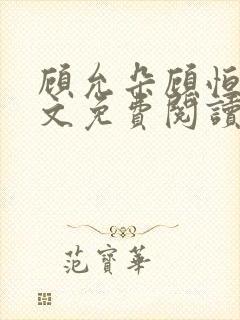 顧允朵顧恒
文免費閱讀
范寶華